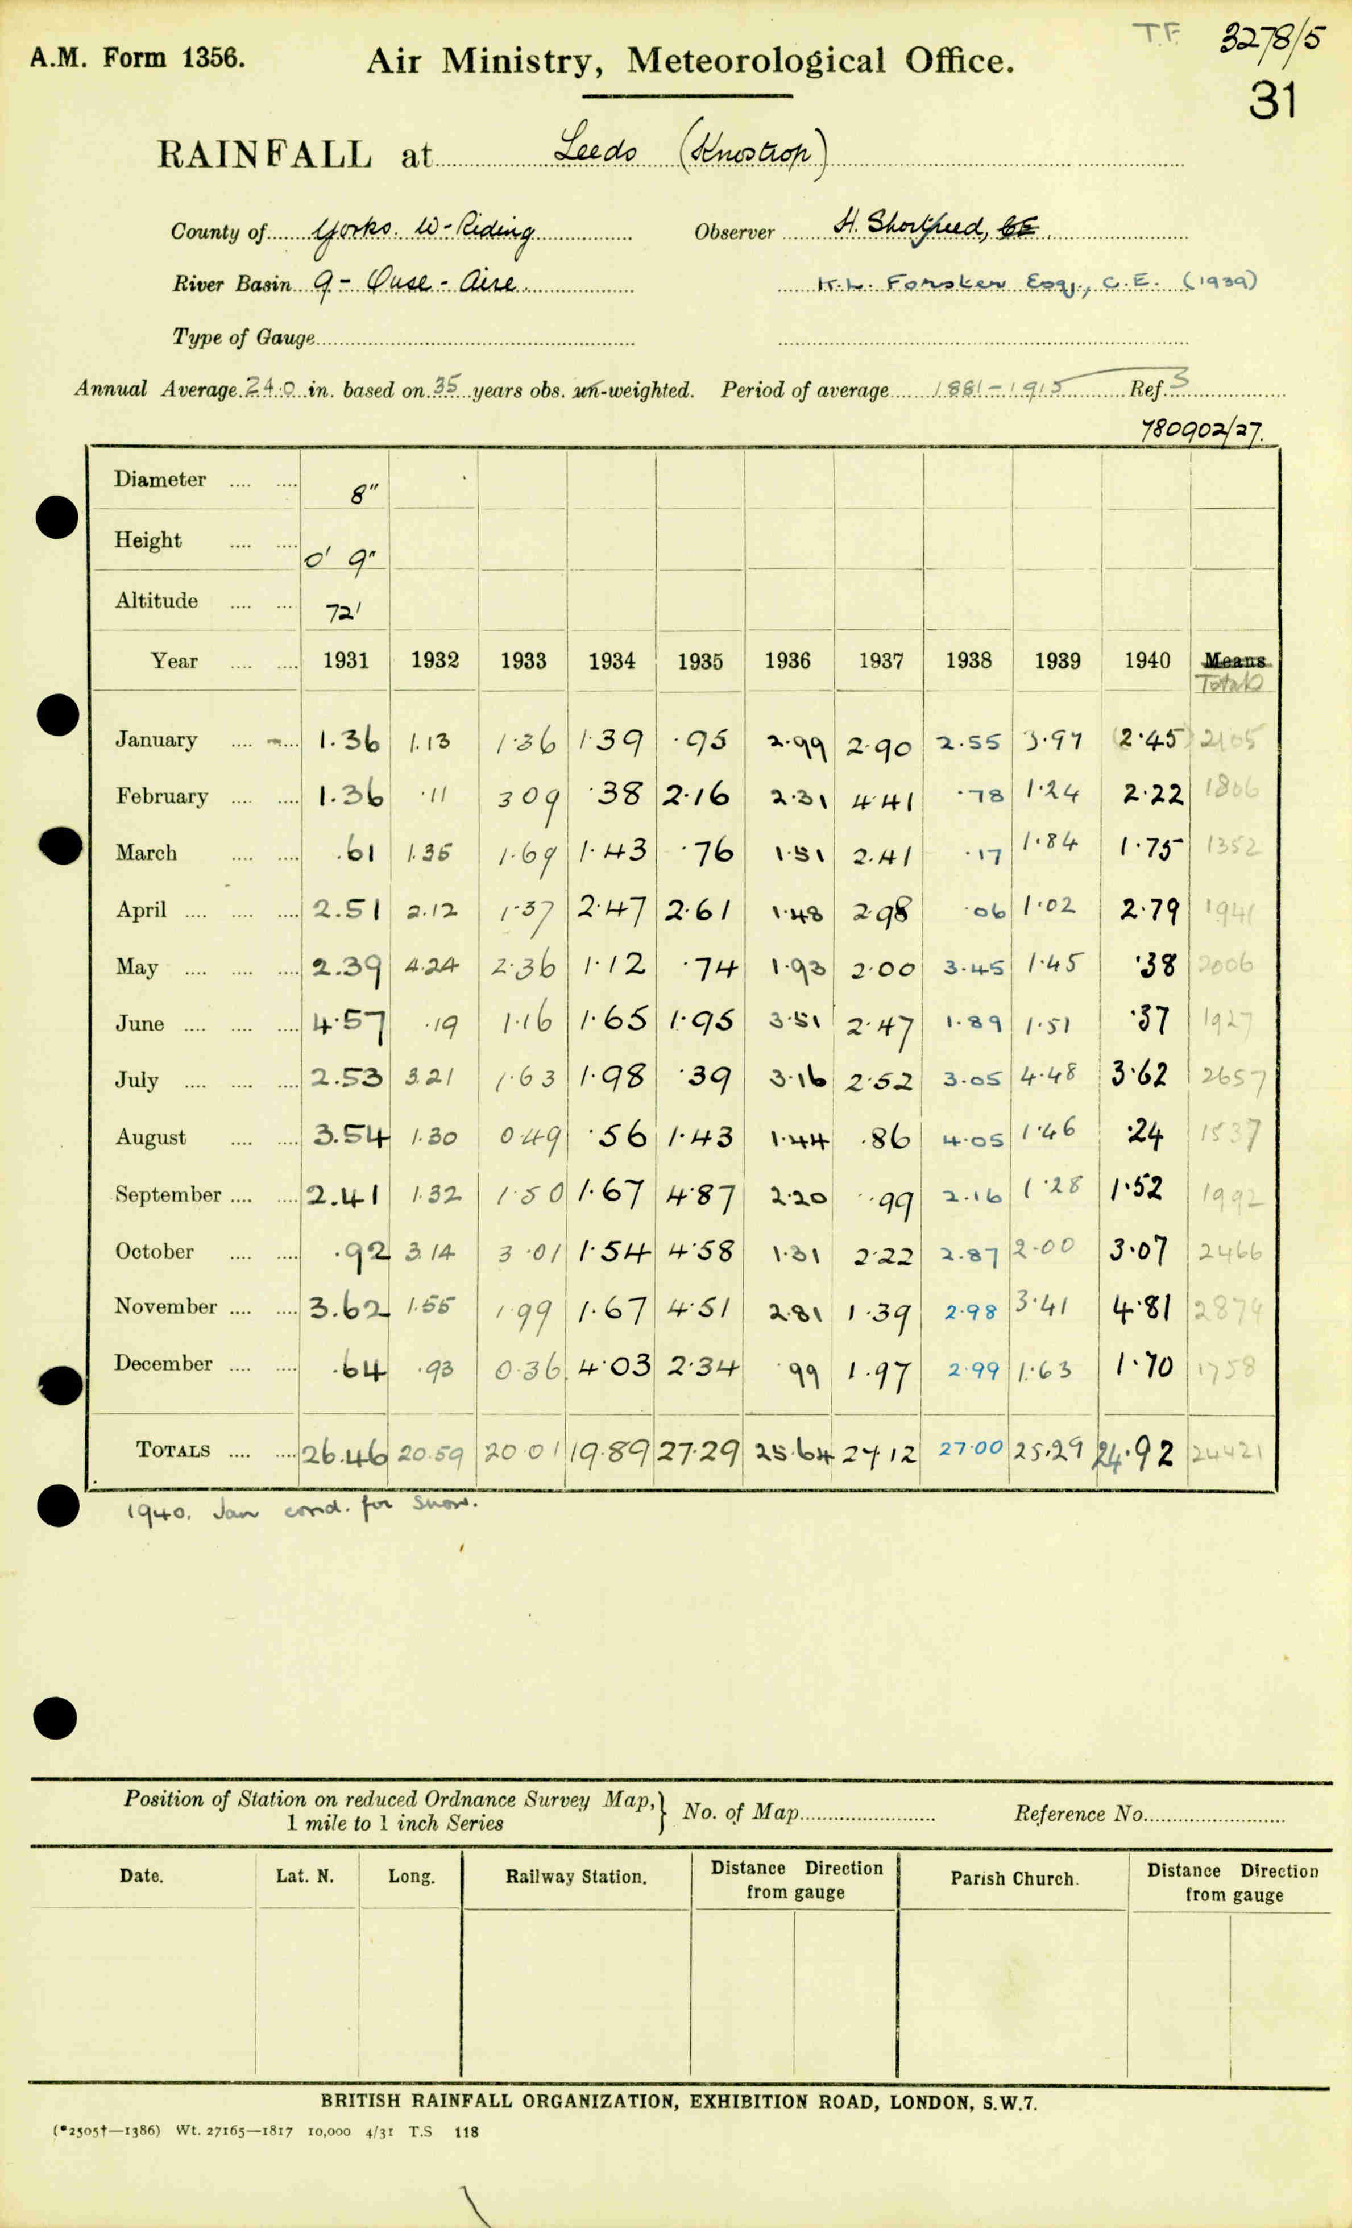 T.F. 3278/5
A.M. Form 1356. Air Ministry, Meteorological Office.
31
RAINFALL at Leeds (Knostrop)
County of Yorks. W-Riding Observer H. Shortfeed, CE.
River Basin 9 - Ouse - Aire H.L. Forsker Esq., C.E. (1939)
Type of Gauge
Annual Average 24.0 in. based on 35 years obs. un-weighted. Period of average 1881-1915 Ref. 3
780902/27.
Diameter .... .... 8"
Height .... .... 0' 9"
Altitude .... .... 72'
Year .... .... 1931 1932 1933 1934 1935 1936 1937 1938 1939 1940 Means
Totals
January .... .... 1.36 1.13 1.36 1.39 .95 2.99 2.90 2.55 3.97 (2.45) 2105
February .... .... 1.36 .11 3 09 .38 2.16 2.31 4.41 .78 1.24 2.22 1806
March .... .... .61 1.35 1.69 1.43 .76 1.51 2.41 .17 1.84 1.75 1352
April .... .... .... 2.51 2.12 1.37 2.47 2.61 1.48 2.98 .06 1.02 2.79 1941
May .... .... .... 2.39 4.24 2.36 1.12 .74 1.93 2.00 3.45 1.45 .38 2006
June .... .... .... 4.57 .19 1.16 1.65 1.95 3.51 2.47 1.89 1.51 .37 1927
July .... .... .... 2.53 3.21 1.63 1.98 .39 3.16 2.52 3.05 4.48 3.62 2657
August .... .... 3.54 1.30 0.49 .56 1.43 1.44 .86 4.05 1.46 .24 1537
September .... .... 2.41 1.32 1.50 1.67 4.87 2.20 .99 2.16 1.28 1.52 1992
October .... .... .92 3.14 3.01 1.54 4.58 1.31 2.22 2.87 2.00 3.07 2466
November .... .... 3.62 1.55 1.99 1.67 4.51 2.81 1.39 2.98 3.41 4.81 2874
December .... .... .64 .93 0.36 4.03 2.34 .99 1.97 2.99 1.63 1.70 1758
TOTALS .... .... 26.46 20.59 20 01 19.89 27.29 25.64 27 12 27.00 25.29 24.92 24421
1940. Jan cond. for snow.
Position of Station on reduced Ordnance Survey Map,} No. of Map Reference No.
1 mile to 1 inch Series
Date. Lat. N. Long. Railway Station. Distance Direction from gauge Parish Church. Distance Direction from gauge
BRITISH RAINFALL ORGANIZATION, EXHIBITION ROAD, LONDON, S.W.7.
(*2505†—1386) Wt. 27165—1817 10,000 4/31 T.S 118